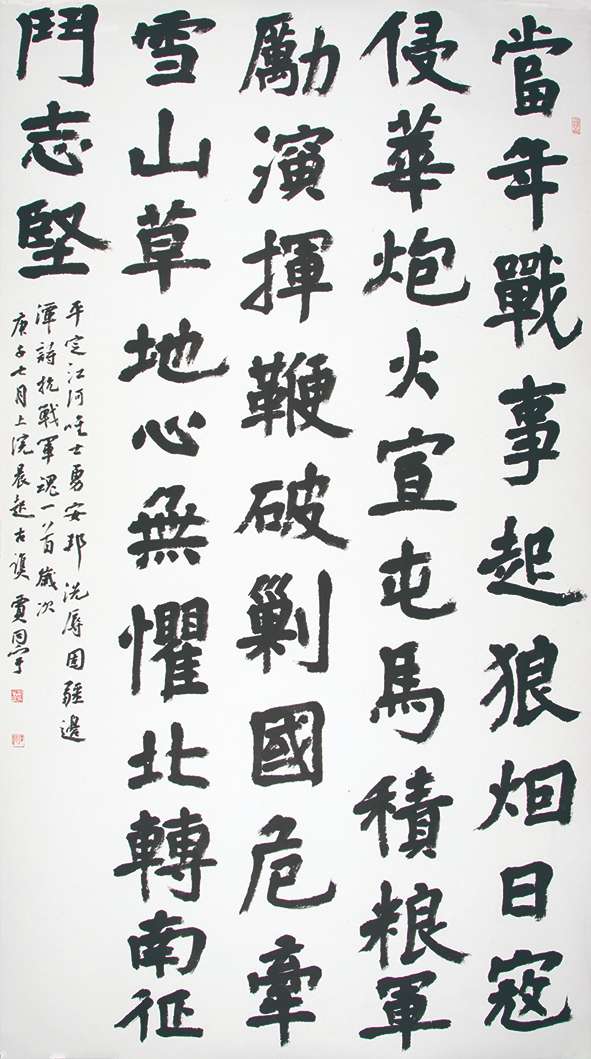 當年戰事起狼烟日寇
侵華炮火宣屯馬積粮軍
勵演揮鞭破剿國危牽
雪山草地心無懼北轉南征
鬥志堅
平定江河唯士勇安邦洗辱固疆邊
詩抗戰軍魂一首歲次
庚子七月上浣晨起古賈同